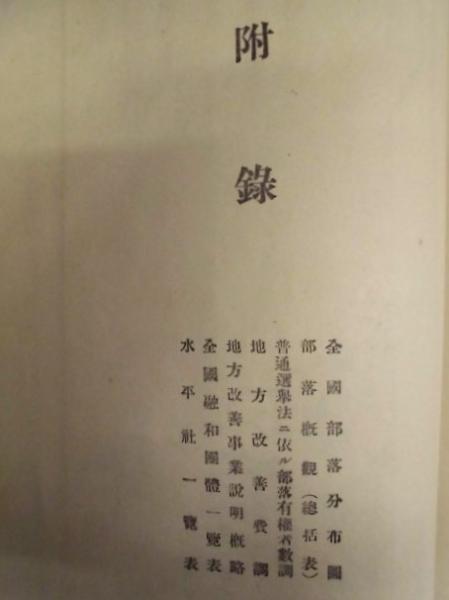 附錄
全國部落分布圖
部落概觀(總括表)
普通選擧法ニ依ル部落有權者數調
地方改善費調
地方改善事業說明概略
全國融和團體一覽表
水平社一覽表